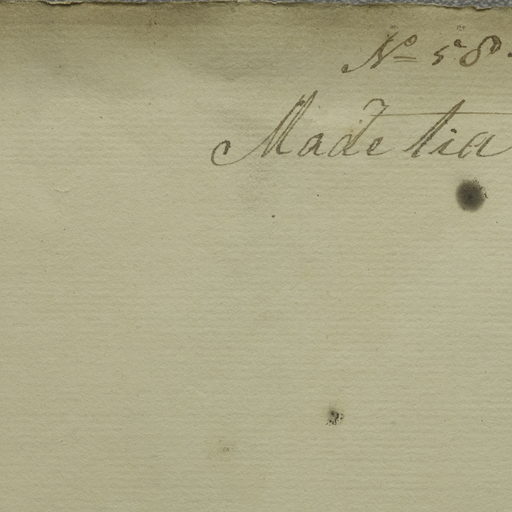 No 58.
Made tia